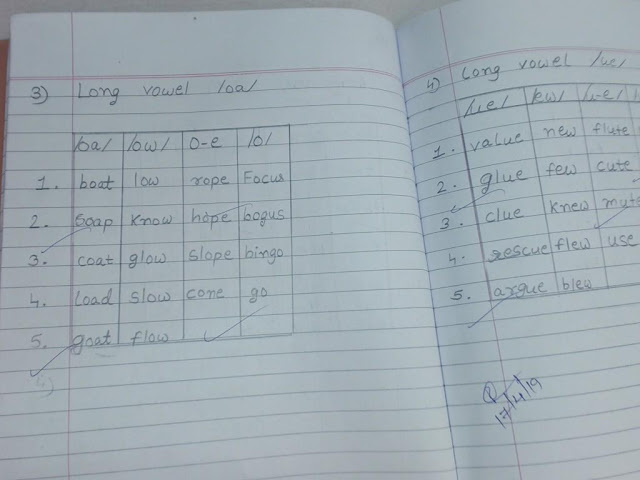 3) Long vowel /oa/
/oa/ /ow/ o-e /o/
1. boat low rope Focus
2. Soap know hope bogus
3. coat glow slope bingo
4. Load slow cone go
5. goat flow
4)
4) Long vowel /ue/
/ue/ /ew/ /u-e/
1. value new flute
2. glue few cute
3. clue knew mute
4. rescue flew use
5. argue blew
17/4/19